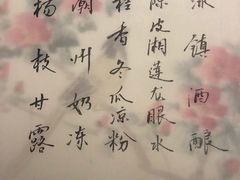 冰镇酒酿
陈皮湘莲龙眼水
桂香冬瓜凉粉
潮州奶冻
杨枝甘露